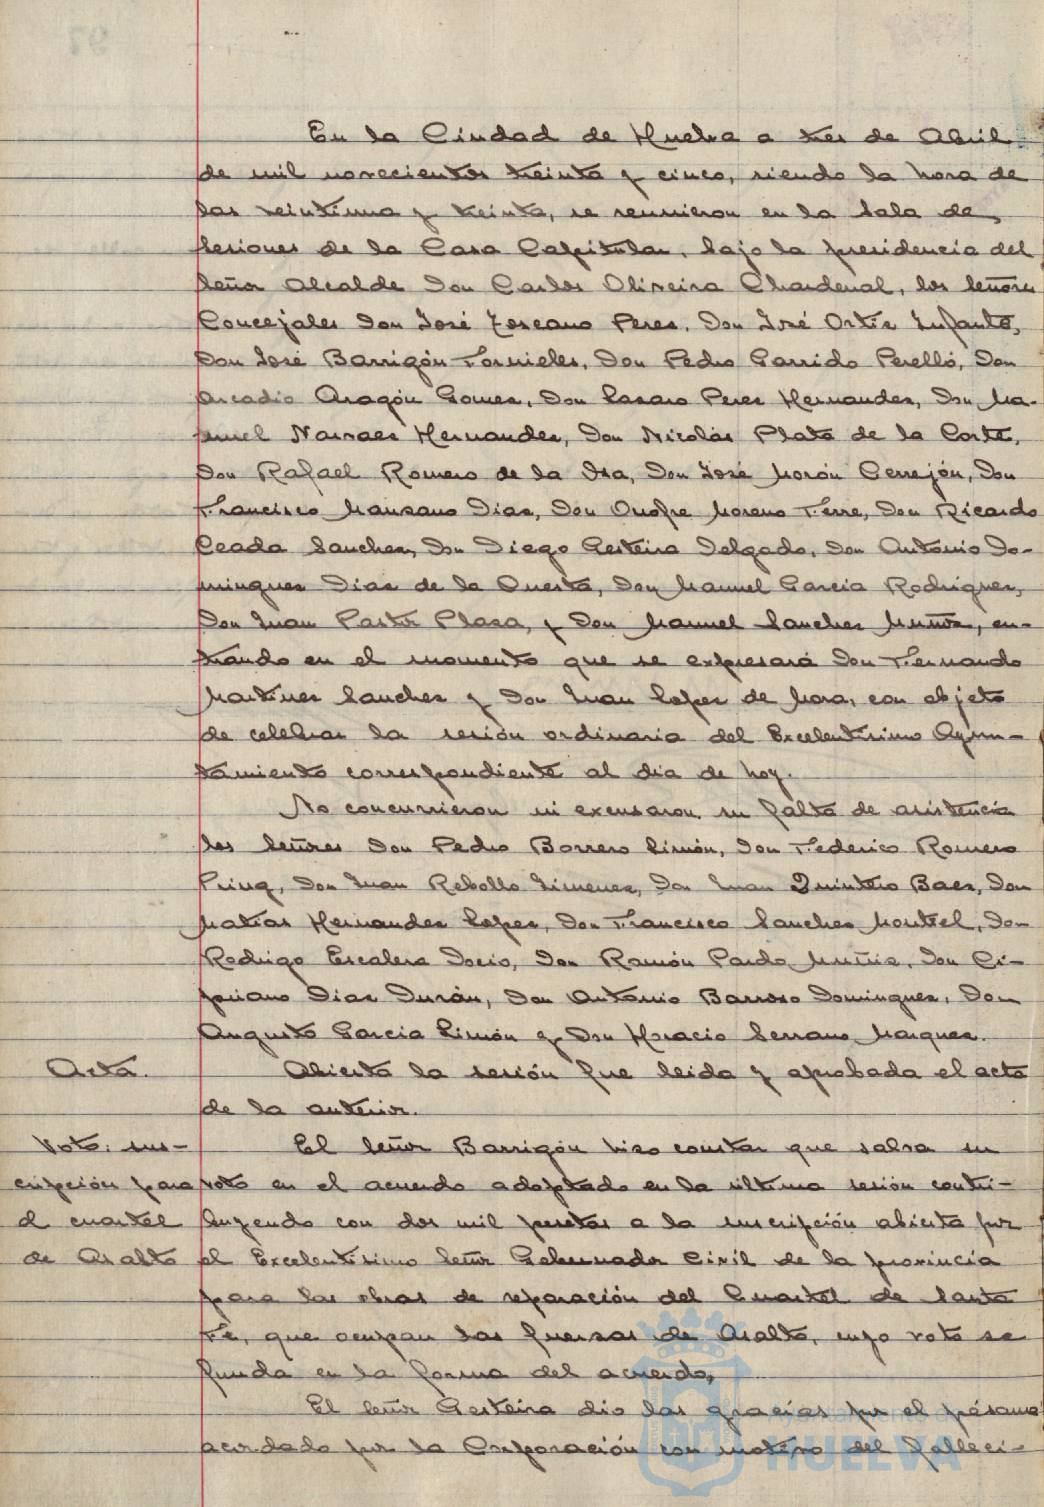 En la Ciudad de Huelva a tres de Abril
de mil novecientos treinta y cinco, siendo la hora de
las veintiuna y treinta, se reunieron en la Sala de
Sesiones de la Casa Capitular, bajo la presidencia del
Señor Alcalde Don Carlos Oliveira Chardenal, los Señores
Concejales Don José Toscano Perez, Don José Ortiz Infante,
Don José Barrigón Fornieles, Don Pedro Garrido Perelló, Don
Arcadio Aragón Gomez, Don Lazaro Perez Hernandez, Don Ma-
nuel Narvaez Hernandez, Don Nicolás Plata de la Corte,
Don Rafael Romero de la Osa, Don José Morón Cerrejón, Don
Francisco Manzano Diaz, Don Onofre Moreno Ferre, Don Ricardo
Ceada Sanchez, Don Diego Gesteira Delgado, Don Antonio Do-
minguez Diaz de la Questa, Don Manuel Garcia Rodriguez,
Don Juan Pastor Plaza, y Don Manuel Sanchez Muñiz, en-
trando en el momento que se expresará Don Fernando
Martinez Sanchez y Don Juan Lopez de Mora, con objeto
de celebrar la sesión ordinaria del Excelentísimo Ayun-
tamiento correspondiente al dia de hoy.
No concurrieron ni excusaron su falta de asistencia
los Señores Don Pedro Borrero Limón, Don Federico Romero
Prieq, Don Juan Rebollo Jimenez, Don Juan Quintero Baez, Don
Matías Hernandez Lopez, Don Francisco Sanchez Montiel, Don
Rodrigo Escalera Socio, Don Ramón Pardo Muñiz, Don Ci-
priano Diaz Durán, Don Antonio Barroso Dominguez, Don
Augusto Garcia Limón y Don Horacio Serrano Marquez.
Acta. Abierta la sesión fue leida y aprobada el acta
de la anterior.
Voto: sus- El Señor Barrigón hizo constar que salva su
cripción para voto en el acuerdo adoptado en la última sesión contri-
el cuartel buyendo con dos mil pesetas a la suscripción abierta por
de Asalto el Excelentísimo Señor Gobernador Civil de la provincia
para las obras de reparación del Cuartel de Santa
Fe, que ocupan las fuerzas de Asalto, cuyo voto se
funda en la forma del acuerdo.
El Señor Gesteira dio las gracias por el pésame
acordado por la Corporación con motivo del falleci-
HUELVA